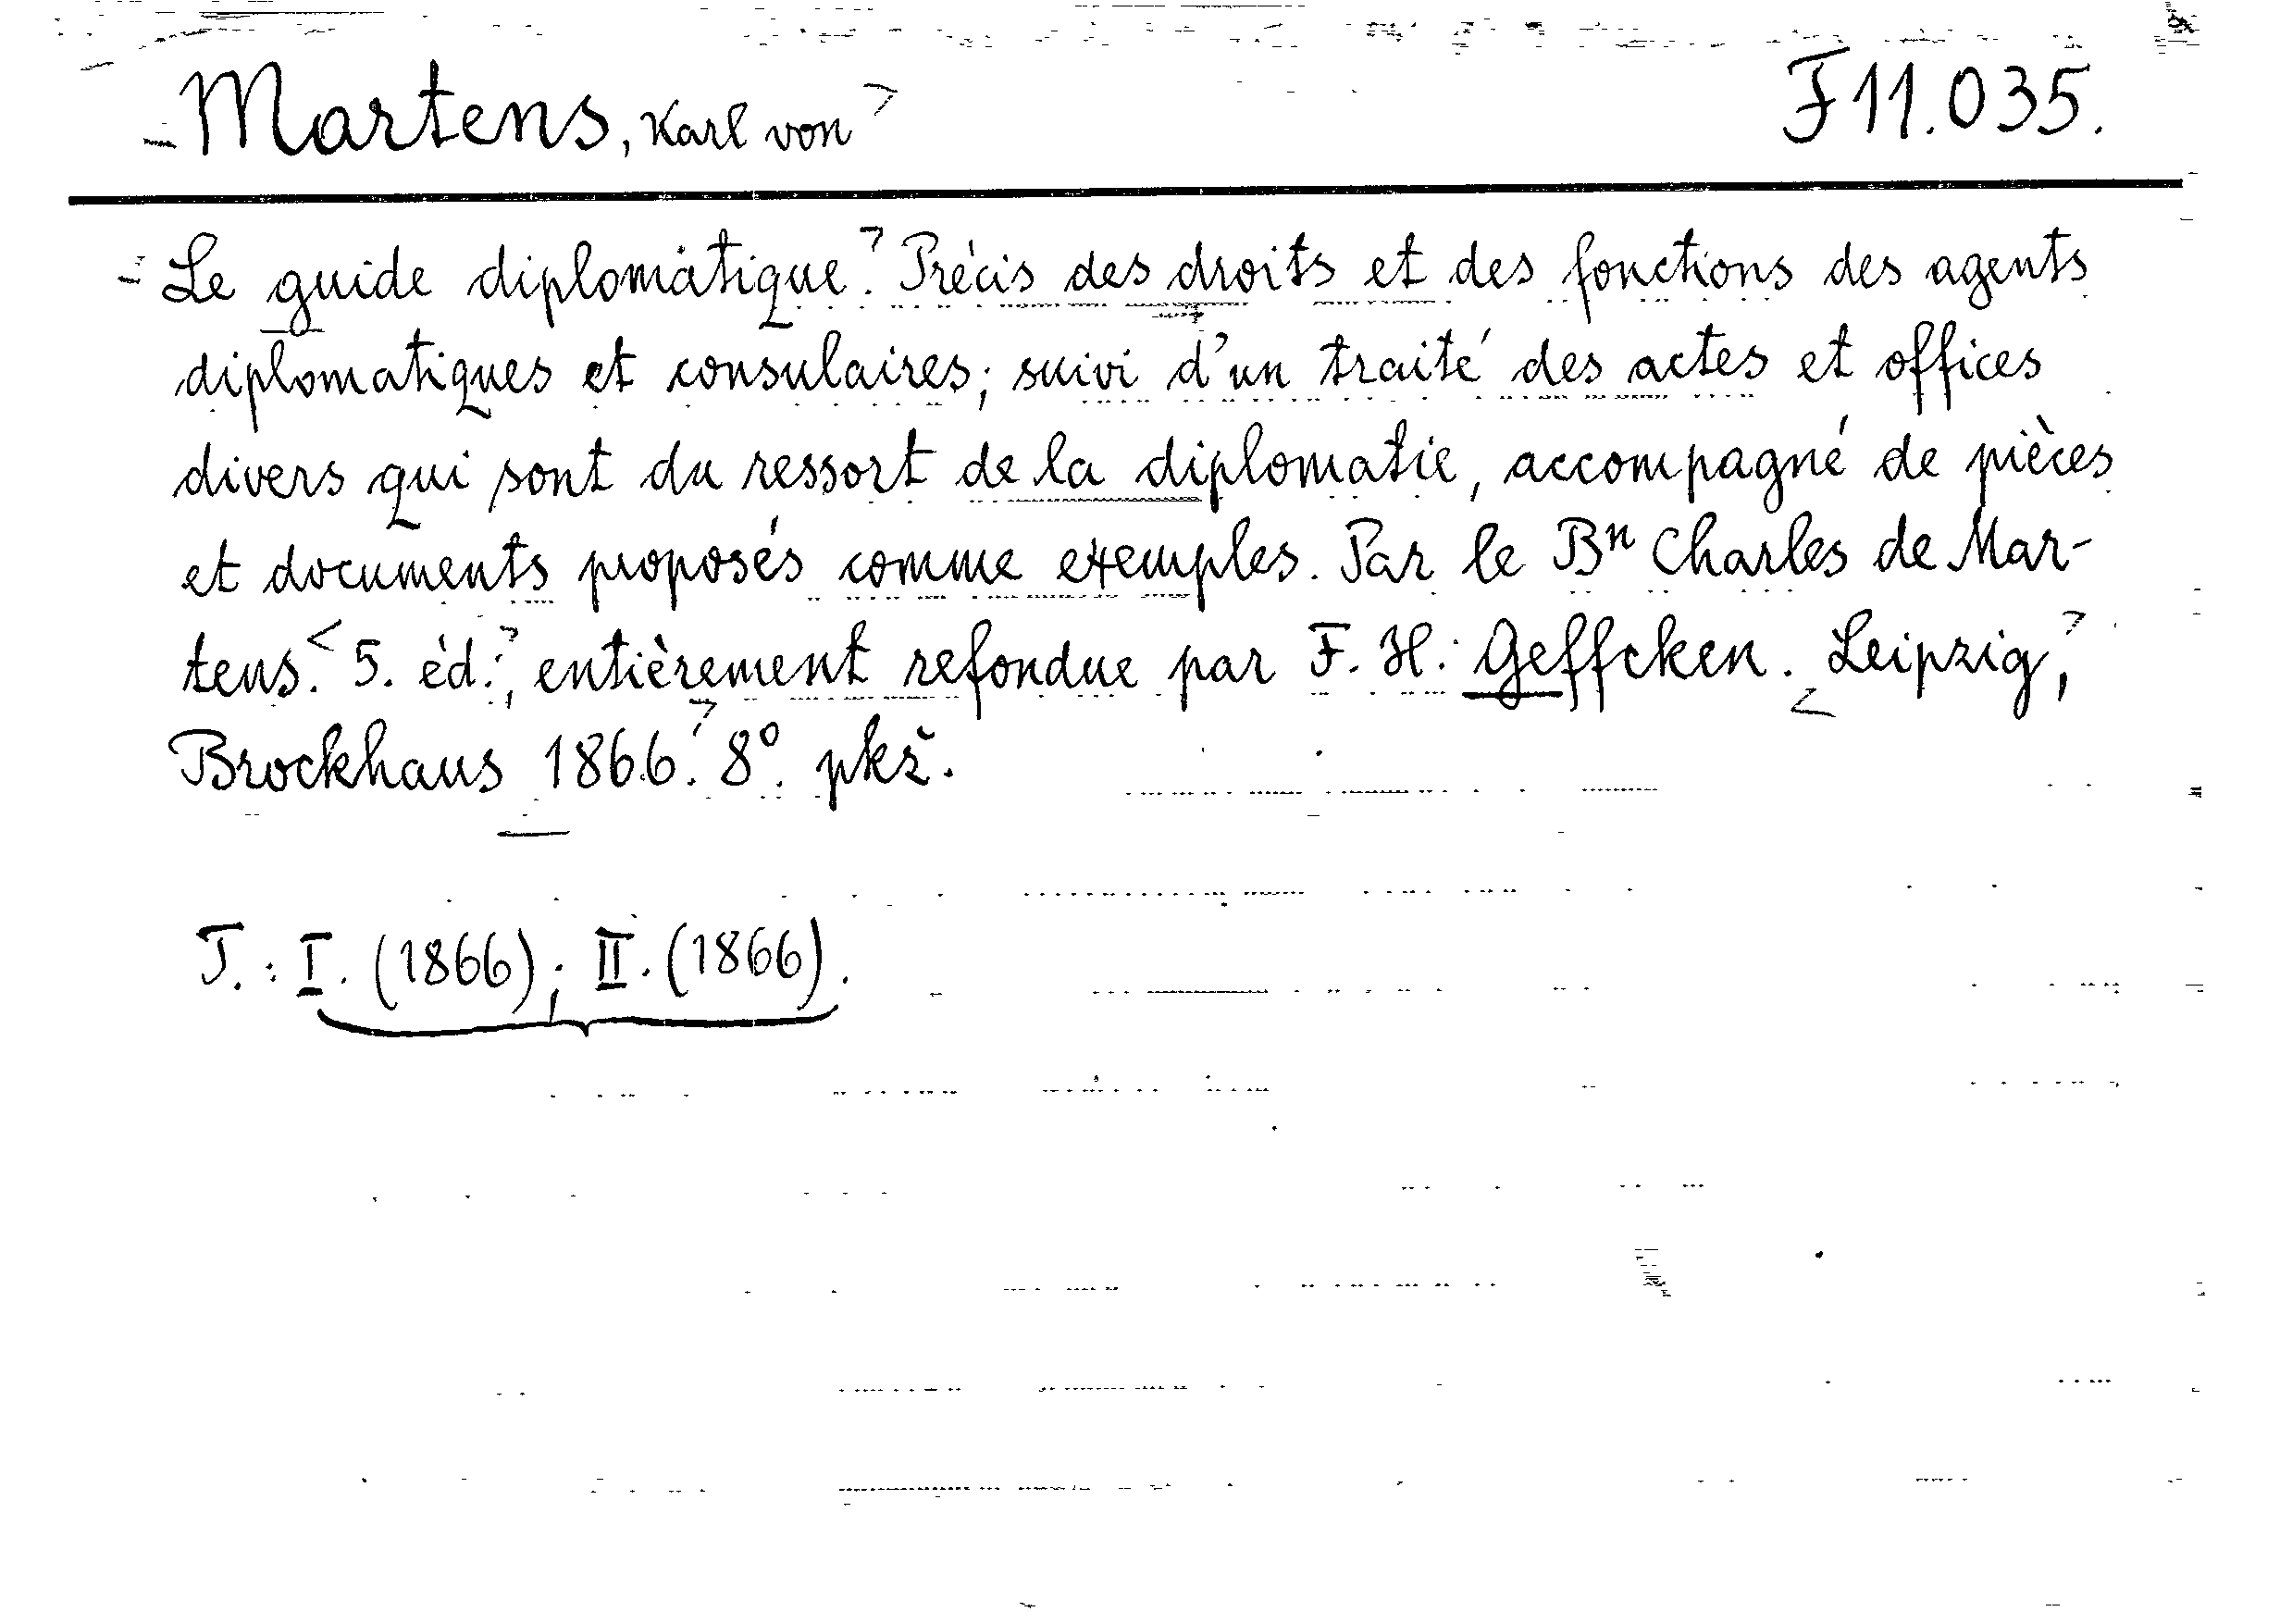 Martens, Karl von
F 11.035.
Le guide diplomatique. Précis des droits et des fonctions des agents
diplomatiques et consulaires; suivi d'un traité des actes et offices
divers qui sont du ressort de la diplomatie, accompagné de pièces
et documents proposés comme exemples. Par le Bn Charles de Mar-
tens. 5. éd., entièrement refondue par F. H. Geffcken. Leipzig,
Brockhaus 1866. 8°. pkž.
T.: I. (1866); II. (1866).